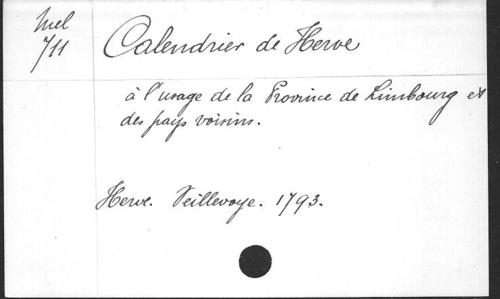 Mel
711
Calendrier de Herve
à l'usage de la Province de Limbourg et
des pays voisins.
Herve. Veillevoye. 1793.